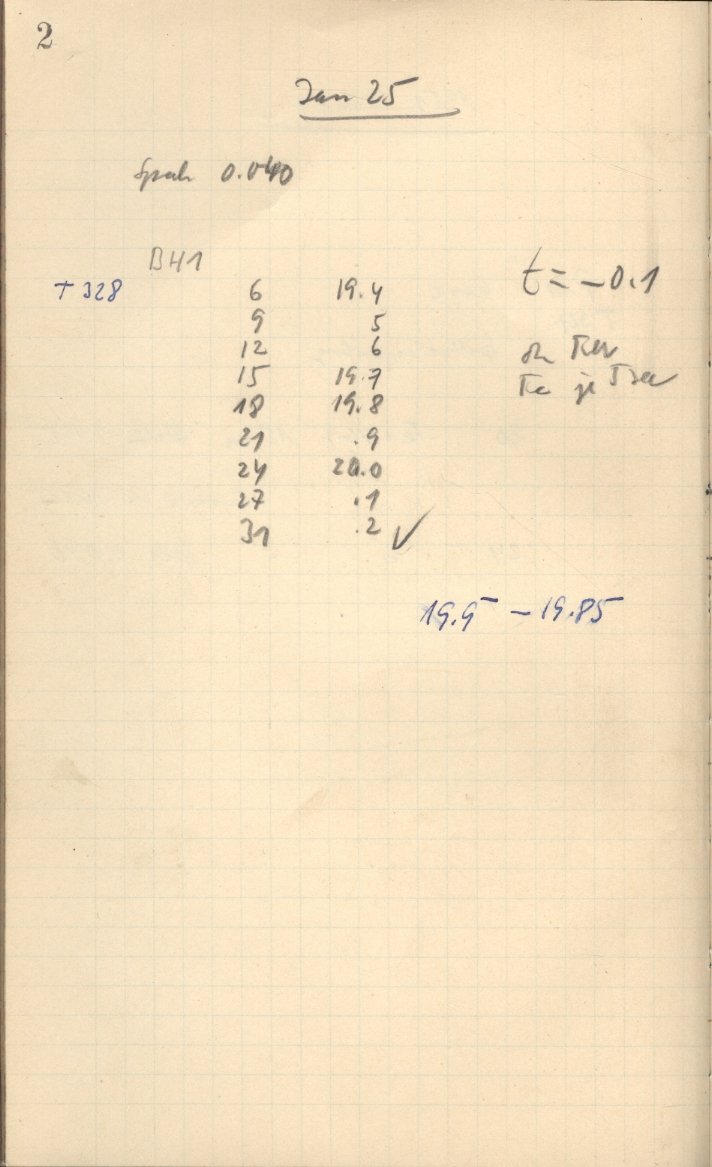 2
Jan 25
0.040
B41
+ 328 6 19.4
9 5
12 6
15 19.7
18 19.8
21 .9
24 20.0
27 .1
31 .2 ✓
t = -0.1
19.9 - 19.85